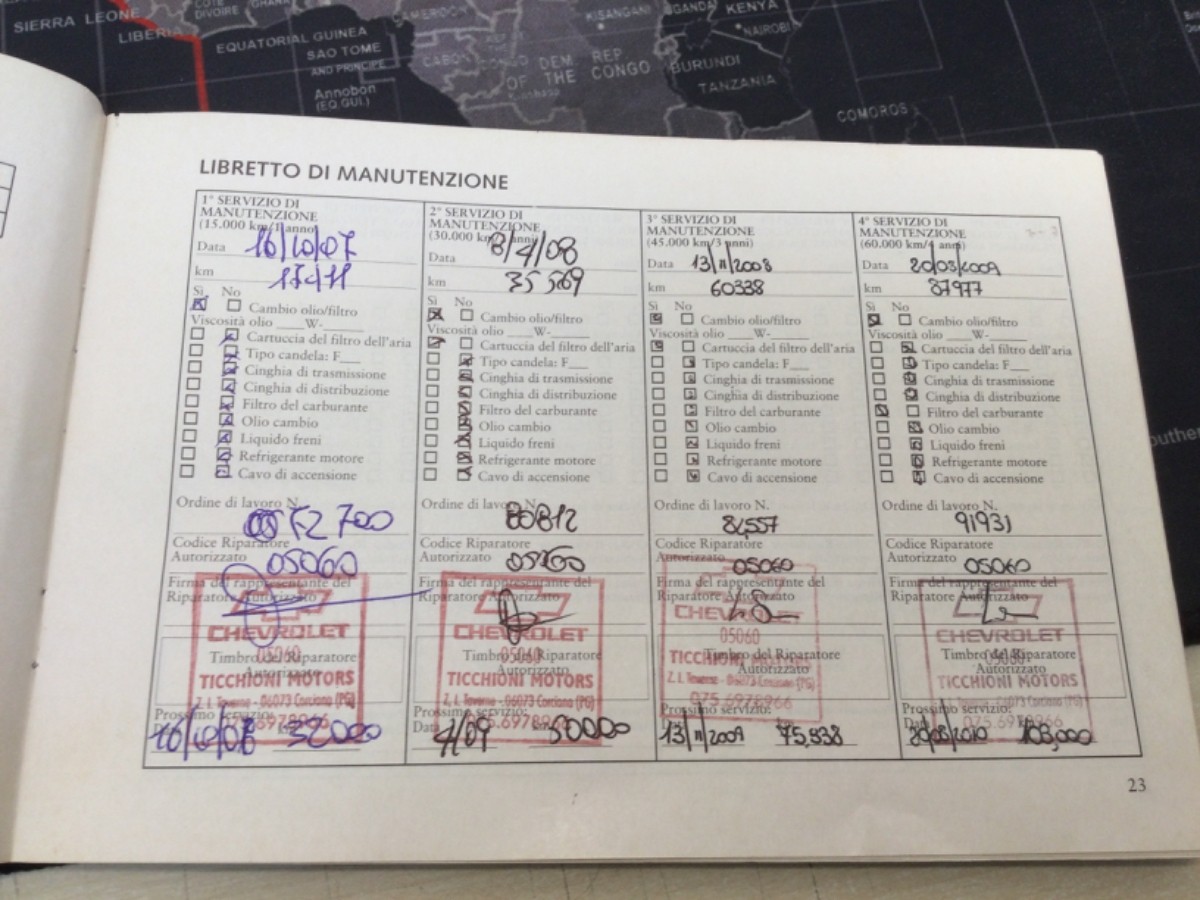 SIERRA LEONE
LIBERIA
CÔTE
DIVOIRE
GHANA
EQUATORIAL GUINEA
SAO TOME
AND PRINCIPE
Annobon
(EQ.GUI.)
CAMEROON
DEM. REP
OF THE CONGO
KISANGANI
UGANDA
KENYA
NAIROBI
BURUNDI
TANZANIA
COMOROS
LIBRETTO DI MANUTENZIONE
1° SERVIZIO DI
MANUTENZIONE
(15.000 km/1 anno)
Data 16/10/07
km
Sì No
Cambio olio/filtro
Viscosità olio ____W-______
Cartuccia del filtro dell'aria
Tipo candela: F___
Cinghia di trasmissione
Cinghia di distribuzione
Filtro del carburante
Olio cambio
Liquido freni
Refrigerante motore
Cavo di accensione
Ordine di lavoro N.
72700
Codice Riparatore
Autorizzato 05060
Firma del rappresentante del
Riparatore Autorizzato
CHEVROLET
05060
Timbro del Riparatore
Autorizzato
TICCHIONI MOTORS
Z. I. Taverne - 06073 Corciano (PG)
Prossimo servizio:
16/10/08 32000
2° SERVIZIO DI
MANUTENZIONE
(30.000 km/2 anni)
Data 8/4/08
km 35569
Sì No
Cambio olio/filtro
Viscosità olio ____W-______
Cartuccia del filtro dell'aria
Tipo candela: F___
Cinghia di trasmissione
Cinghia di distribuzione
Filtro del carburante
Olio cambio
Liquido freni
Refrigerante motore
Cavo di accensione
Ordine di lavoro N.
80812
Codice Riparatore
Autorizzato 05060
Firma del rappresentante del
Riparatore Autorizzato
CHEVROLET
05060
Timbro del Riparatore
Autorizzato
TICCHIONI MOTORS
Z. I. Taverne - 06073 Corciano (PG)
Prossimo servizio:
Data 4/09 50000
3° SERVIZIO DI
MANUTENZIONE
(45.000 km/3 anni)
Data 13/11/2008
km 60338
Sì No
Cambio olio/filtro
Viscosità olio ____W-______
Cartuccia del filtro dell'aria
Tipo candela: F___
Cinghia di trasmissione
Cinghia di distribuzione
Filtro del carburante
Olio cambio
Liquido freni
Refrigerante motore
Cavo di accensione
Ordine di lavoro N.
Codice Riparatore
Autorizzato 05060
Firma del rappresentante del
Riparatore Autorizzato
CHEVROLET
05060
Timbro del Riparatore
TICCHIONI MOTORS
Autorizzato
Z. I. Taverne - 06073 Corciano (PG)
075.6978966
Prossimo servizio:
13/11/2009 75,338
4° SERVIZIO DI
MANUTENZIONE
(60.000 km/4 anni)
Data 20/08/2009
km 87977
Sì No
Cambio olio/filtro
Viscosità olio ____W-______
Cartuccia del filtro dell'aria
Tipo candela: F___
Cinghia di trasmissione
Cinghia di distribuzione
Filtro del carburante
Olio cambio
Liquido freni
Refrigerante motore
Cavo di accensione
Ordine di lavoro N.
91931
Codice Riparatore
Autorizzato 05060
Firma del rappresentante del
Riparatore Autorizzato
CHEVROLET
05060
Timbro del Riparatore
Autorizzato
TICCHIONI MOTORS
Z. I. Taverne - 06073 Corciano (PG)
Prossimo servizio:
075.6978966
20/08/2010 103,000
23